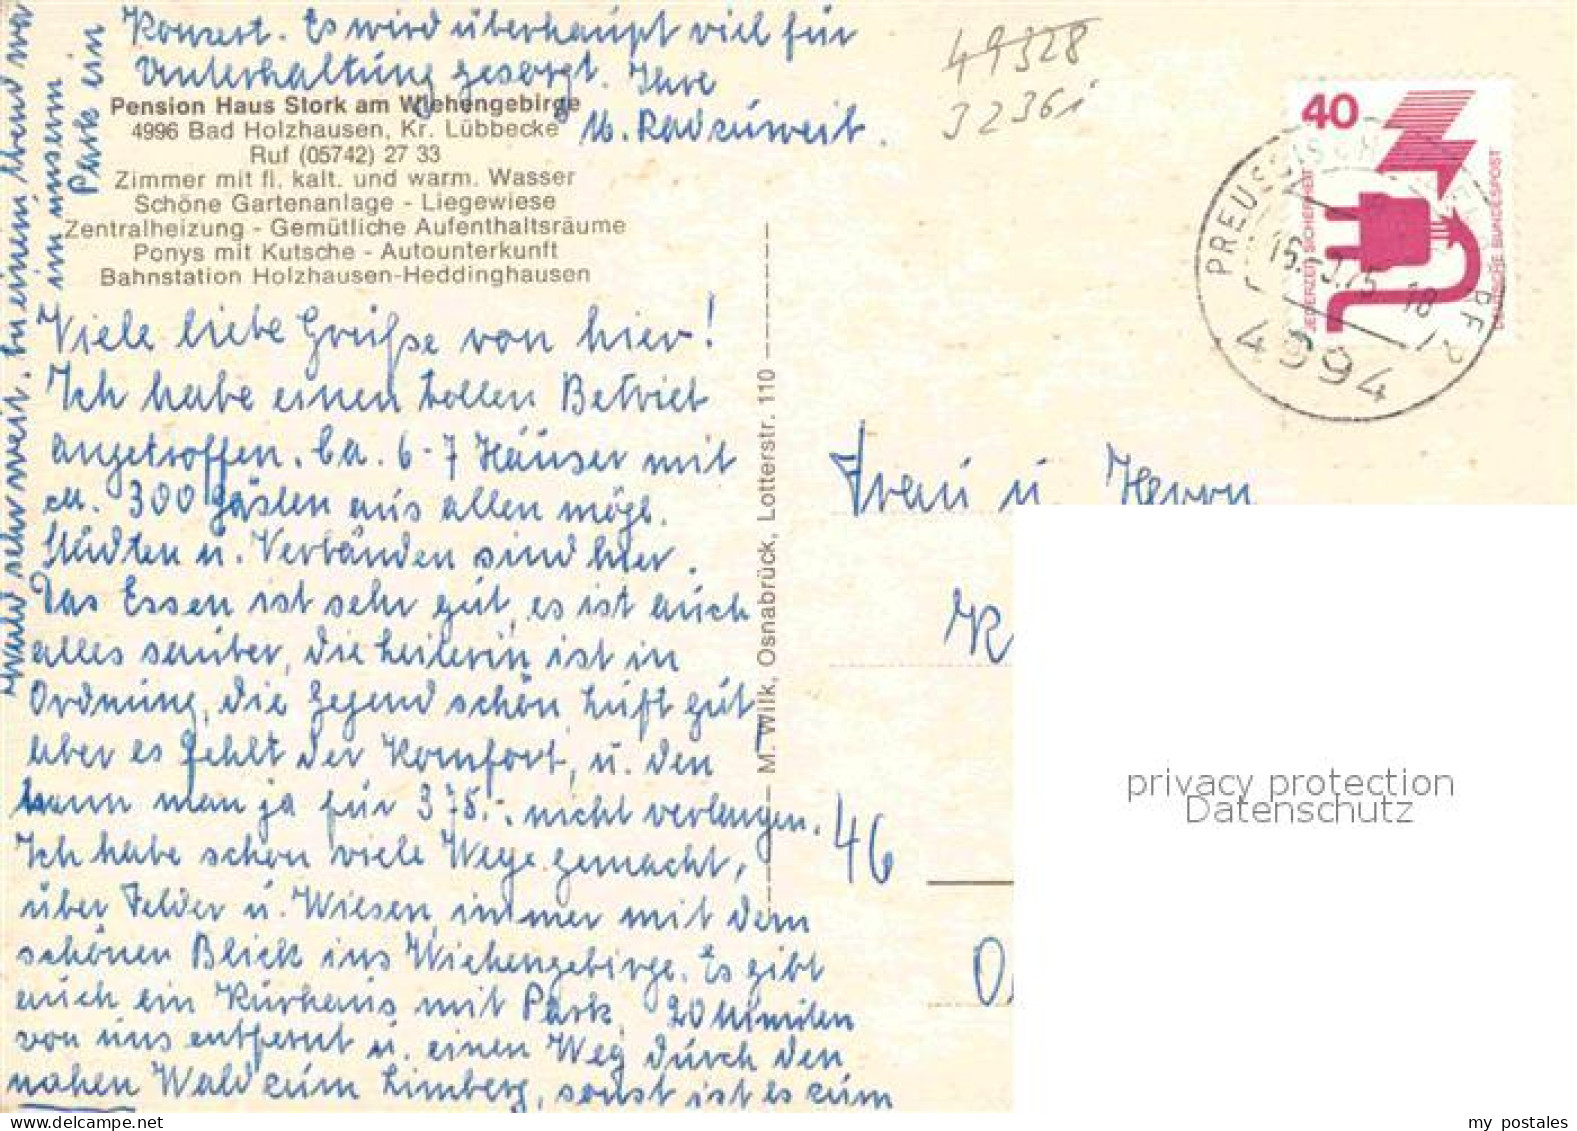 Viele liebe Grüße von hier!
Ich habe einen tollen Betrieb
angetroffen. Ca. 6-7 Häuser mit
ca. 300 Gästen aus allen mögl.
Städten u. Verbänden sind hier.
Das Essen ist sehr gut, es ist auch
alles sauber, die Leiterin ist in
Ordnung, die Gegend schön, Luft gut
Aber es fehlt der Komfort, u. den
kann man ja für 375.- nicht verlangen.
Ich habe schon viele Wege gemacht,
über Felder u. Wiesen, immer mit dem
schönen Blick ins Wiehengebirge. Es gibt
auch ein Kurhaus mit Park, 20 Minuten
von uns entfernt u. einen Weg durch den
nahen Wald zum Limberg, sonst ist es zum
Wald sehr weit. An einem Abend wa
in unserm
Park ein
Konzert. Es wird überhaupt viel für
Unterhaltung gesorgt. Ihre
M. Radzuweit.
Pension Haus Stork am Wiehengebirge
4996 Bad Holzhausen, Kr. Lübbecke
Ruf (05742) 27 33
Zimmer mit fl. kalt. und warm. Wasser
Schöne Gartenanlage - Liegewiese
Zentralheizung - Gemütliche Aufenthaltsräume
Ponys mit Kutsche - Autounterkunft
Bahnstation Holzhausen-Heddinghausen
M. Wilk, Osnabrück, Lotterstr. 110
49328
3236i
40
JEDERZEIT SICHERHEIT
DEUTSCHE BUNDESPOST
PREUSSISCH
75-18
4994
Frau u. Herrn
46
privacy protection
Datenschutz
my postales